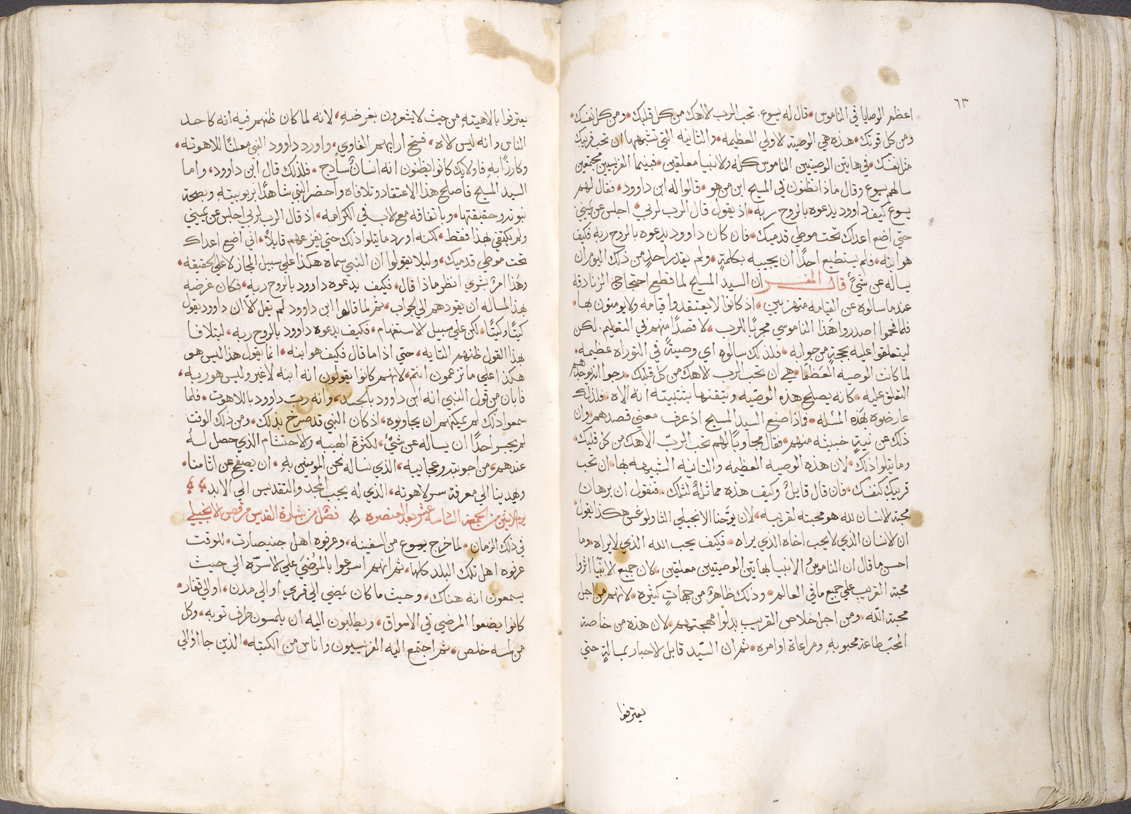 ٦٣
اعظم الوصايا في الناموس، قال له يسوع، تحب الرب الاهك من كل قلبك، ومن كل نفسك،
ومن كل قوتك، هذه هي الوصية الاولي العظيمه، والثانيه التي تشبهها ان تحب قريبك
مثل نفسك، في هاتين الوصيتين الناموس كله والانبيا معلقين، فبينما الفريسين مجتمعين
سالهم يسوع وقال ماذا تظنون في المسيح ابن من هو، قالوا له ابن داوود، فقال لهم
يسوع كيف داوود يدعوه بالروح ربه، اذ يقول قال الرب لربي، اجلس عن يميني
حتي اضع اعداك تحت موطي قدميك، فان كان داوود يدعوه بالروح ربه فكيف
هو ابنه، فلم يستطيع احدًا ان يجيبه بكلمةٍ، ولم يقدر احدٍ من ذلك اليوم ان
يساله عن شيً، قال المفسر ان السيد المسيح لما قطع احتجاج الزنادقة
عندما سالوه عن القيامه منهزيين، اذ كانوا لا يعتقدوا قيامه ولا يومنون بها،
فلما فحموا اصدروا هذا الناموسي مجربًا للرب، لا قصدًا منهم في التعليم، لكن
ليتعلقوا عليه بحجةٍ من جوابه، فلذلك سالوه اي وصيةٍ في التوراه عظيمه،
لما كانت الوصية العظما، هي ان تحب الرب الاهك من كل قلبك، رجوا انه يوجدهم
التعلق عليه، كانه يصلح هذه الوصيه، وينقضها بتثبيته انه الاه، فلذلك
عارضوه بهذه المسله، فماذا صنع السيد المسيح اذ عرف معني قصدهم، وان
ذلك عن نيةٍ خبيثه منهم، فقال مجاوبًا لهم تحب الرب الاهك من كل قلبك،
وما يتلوا ذلك، لان هذه الوصيه العظيمه والثانيه الشبيهه بها، ان تحب
قريبك كنفسك، فان قال قايل، وكيف هذه مماثله لتلك، فنقول ان برهان
محبة الانسان لله هو محبته لقريبه، لان يوحنا الانجيلي الثاولوغس هكذا يقول
ان الانسان الذي لا يحب اخاه الذي يراه، فكيف يحب الله الذي لا يراه، وما
احسن ما قال ان الناموس والانبيا بهاتين الوصيتين معلقين، لان جميع الانبيا اثروا
محبة القريب علي جميع ما في العالم، وذلك ظاهرٌ من جهاتٍ كثيره، لانهم من اجل
محبة الله، ومن اجل خلاص القريب بذلوا مهجتهم، لان هذه من خاصة
المحب طاعة محبوبه ومراعاة اوامره، ثم ان السيد قابل الاحبار بمسالةٍ حتي
يعترفوا
يعترفوا بالاهيته من حيث لا يشعرون بغرضه، لانه لما كان ظنهم فيه انه كاحد
الناس وانه ليس الاه، فسخ رايهم الغاوي، واورد داوود النبي معلنًا للاهوته،
وكارزًا به، فاولايك كانوا يظنون انه انسان ساذج، فلذلك قال ابن داوود، واما
السيد المسيح فاصلح هذا الاعتقاد وتلافاه، واحضر النبي شاهدًا بربوبيته، وبصحة
بنوته وحقيقتها، وباتفاقه مع الاب في الكرامه، اذ قال الرب لربي اجلس عن يميني
ولم يكتفي بهذا فقط، لكنه اورد ما يتلوا ذلك حتي يفزعهم قايلًا، اني اضع اعداك
تحت موطي قدميك، وليلا يقولوا ان النبي سماه هكذا علي سبيل المجاز لا علي الحقيقه،
وهذا امرٌ بشري انظر ماذا قال، فكيف يدعوه داوود بالروح ربه، فكان غرضه
بهذا المساله ان يقودهم الي الجواب، فمن ما قالوا ابن داوود لم يقل لا ان داوود يقول
كيتًا وكيتًا، لكن علي سبيل الاستفهام، فكيف يدعوه داوود بالروح ربه، ليتلافا
بهذا القول ظنهم التايه، حتي اذا ما قال فكيف هو ابنه، انما يقول هذا ليس هو
هكذا علي ما تزعمون انتم، لانهم كانوا يقولون انه ابنه لا غير وليس هو ربه،
فابان من قول النبي انه ابن داوود بالجسد، وانه رب داوود باللاهوت، فلما
سمعوا ذلك لم يمكنهم ان يجاوبوه، اذ كان النبي قد صرخ بذلك، ومن ذلك الوقت
لم يجسر احدًا ان يساله عن شيً، لكثرة الهيبه والاحتشام الذي حصل له
عندهم، من جودته وعجايبه، الذي نساله نحن المومنين به، ان يصفح عن اثامنا،
ويهدينا الي معرفة سر لاهوته، الذي له يجب المجد والتقديس الي الابد
يوم الاثنين من الجمعة الثامنة عشر بعد العنصره، فصل من بشارة القديس مرقص الانجيلي
في ذلك الزمان، لما خرج يسوع من السفينه، وعرفوه اهل جنيصارت، للوقت
عرفوه اهل تلك البلد كلها، ثم انهم اسرعوا بالمرضي علي الاسره الي حيث
يسمعون انه هناك، وحيث ما كان يمضي الي قري، او الي مدن، او الي قفار،
كانوا يضعوا المرضي في الاسواق، ويطلبون اليه ان يلمسون طرف ثوبه، وكل
من لمسه خلص، ثم اجتمع اليه الفريسيون واناس من الكتبه، الذين جااو الي